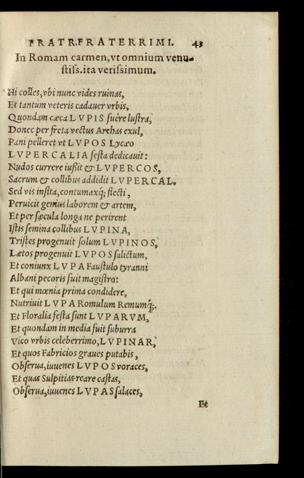 FRATR. FRATERRIMI. 43
In Romam carmen, vt omnium venu-
stiss. ita verissimum.
Hi colles, vbi nunc vides ruinas,
Et tantum veteris cadauer vrbis,
Quondam cæca LVPIS fuêre lustra,
Donec per freta vectus Archas exul,
Pani pelleret vt LVPOS Lycæo
LVPERCALIA festa dedicauit:
Nudos currere iußit & LVPERCOS,
Sacrum & collibus addidit LVPERCAL.
Sed vis insita, contumaxq́; flecti,
Peruicit genius laborem & artem,
Et per sæcula longa ne perirent
Istis semina collibus LVPINA,
Tristes progenuit solum LVPINOS,
Lætos progenuit LVPOS salictum,
Et coniunx LVPA Faustulo tyranni
Albani pecoris fuit magistro:
Et qui mœnia prima condidere,
Nutriuit LVPA Romulum Remumq́;.
Et Floralia festa sunt LVPARVM,
Et quondam in media fuit suburra
Vico vrbis celeberrimo, LVPINAR,
Et quos Fabricios graues putabis,
Obserua, iuuenes LVPOS voraces,
Et quas Sulpitias reare castas,
Obserua, iuuenes LVPAS salaces,
Et